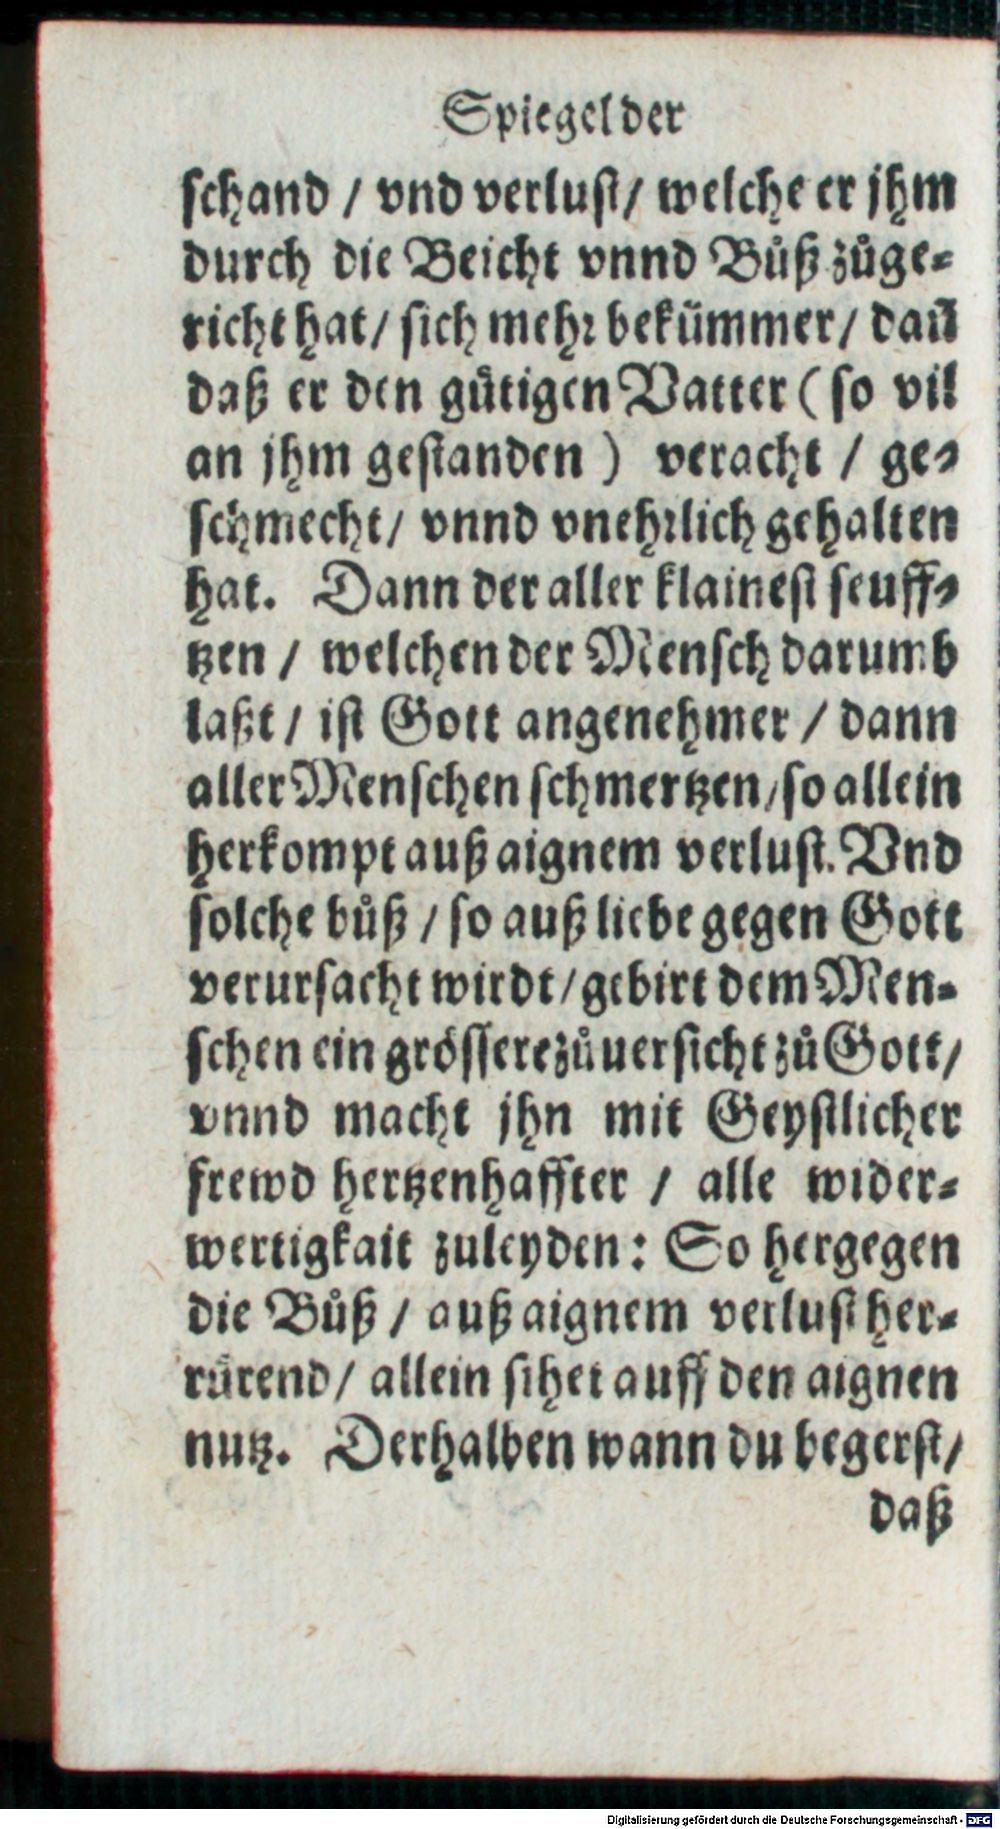 Spiegel der
schand / vnd verlust / welche er jhm
durch die Beicht vnnd Bůß zůge=
richt hat / sich mehr bekümmer / dañ
daß er den gütigen Vatter ( so vil
an jhm gestanden ) veracht / ge=
schmecht / vnnd vnehrlich gehalten
hat. Dann der aller klainest seuff=
tzen / welchen der Mensch darumb
laßt / ist Gott angenehmer / dann
aller Menschen schmertzen / so allein
herkompt auß aignem verlust. Vnd
solche bůß / so auß liebe gegen Gott
verursacht wirdt / gebirt dem Men=
schen ein grössere zůuersicht zů Gott /
vnnd macht jhn mit Geystlicher
frewd hertzenhaffter / alle wider=
wertigkait zuleyden : So hergegen
die Bůß / auß aignem verlust her=
rürend / allein sihet auff den aignen
nutz. Derhalben wann du begerst /
daß
Digitalisierung gefördert durch die Deutsche Forschungsgemeinschaft - DFG